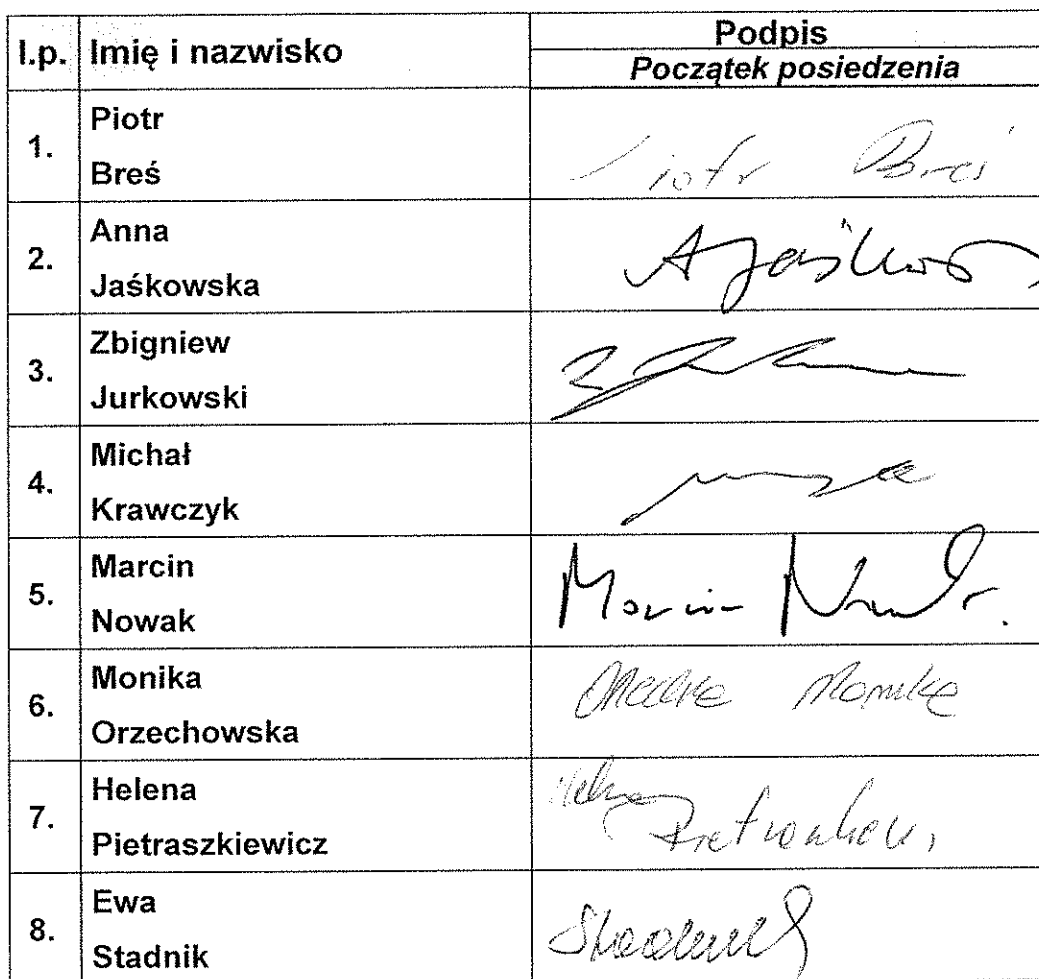 l.p. Imię i nazwisko Podpis
Początek posiedzenia
1. Piotr
Breś
Piotr Breś
2. Anna
Jaśkowska
A Jaśkow
3. Zbigniew
Jurkowski
4. Michał
Krawczyk
5. Marcin
Nowak
Marcin Nowak
6. Monika
Orzechowska
Monika
7. Helena
Pietraszkiewicz
Helena
8. Ewa
Stadnik